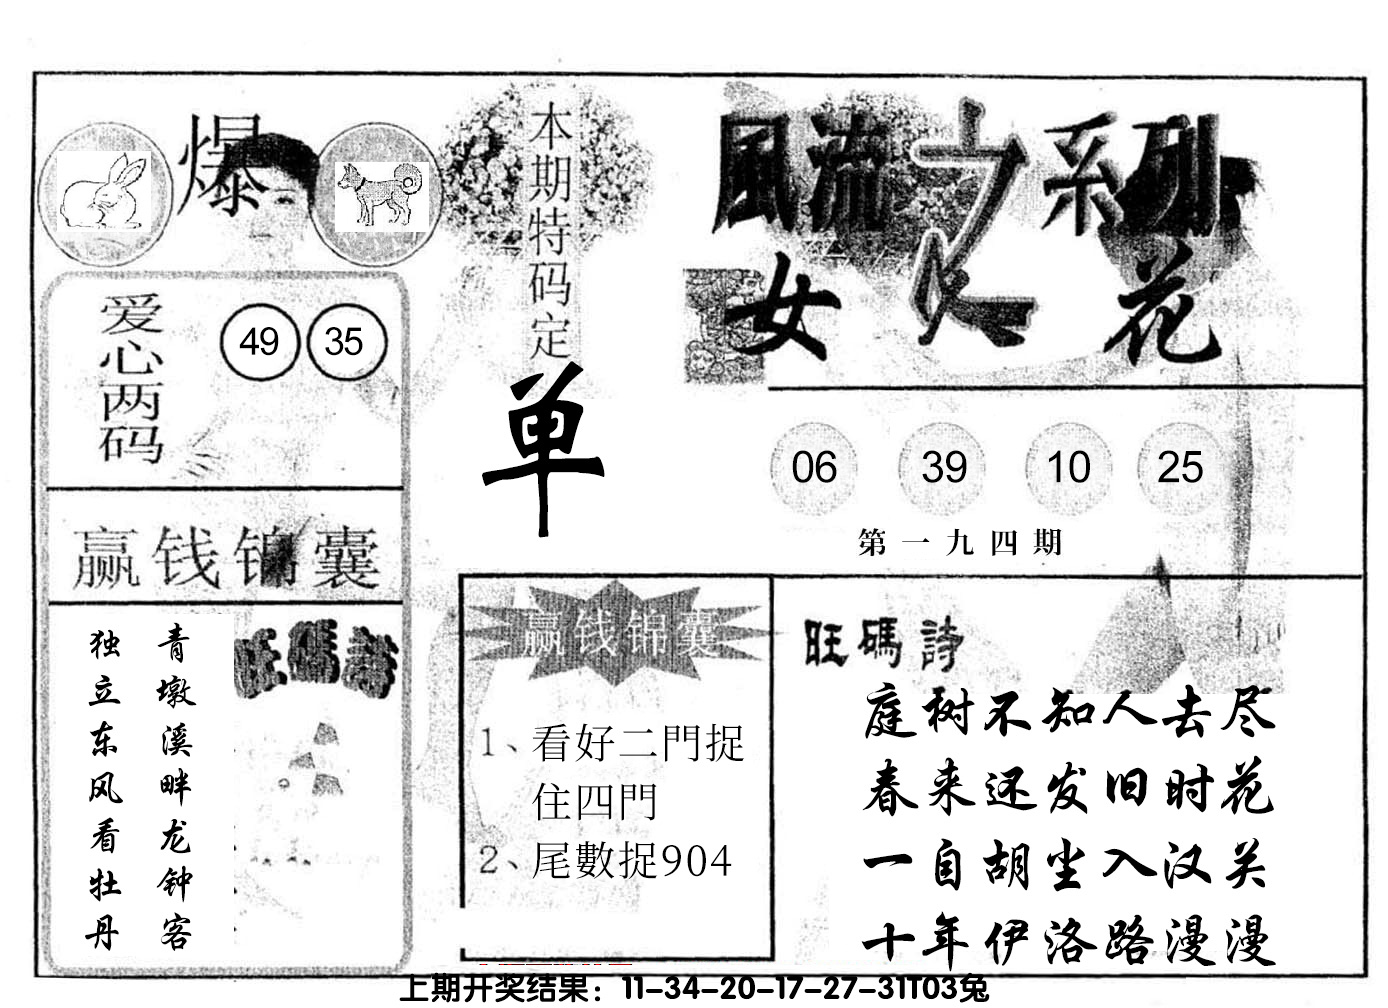 爆
本期特码定
单
風流之系列
女人花
爱心两码
49 35
06 39 10 25
第一九四期
赢钱锦囊
青墩溪畔龙钟客
独立东风看牡丹
旺碼詩
赢钱锦囊
1、看好二門捉
住四門
2、尾數捉904
旺碼詩
庭树不知人去尽
春来还发旧时花
一自胡尘入汉关
十年伊洛路漫漫
上期开奖结果：11-34-20-17-27-31T03兔